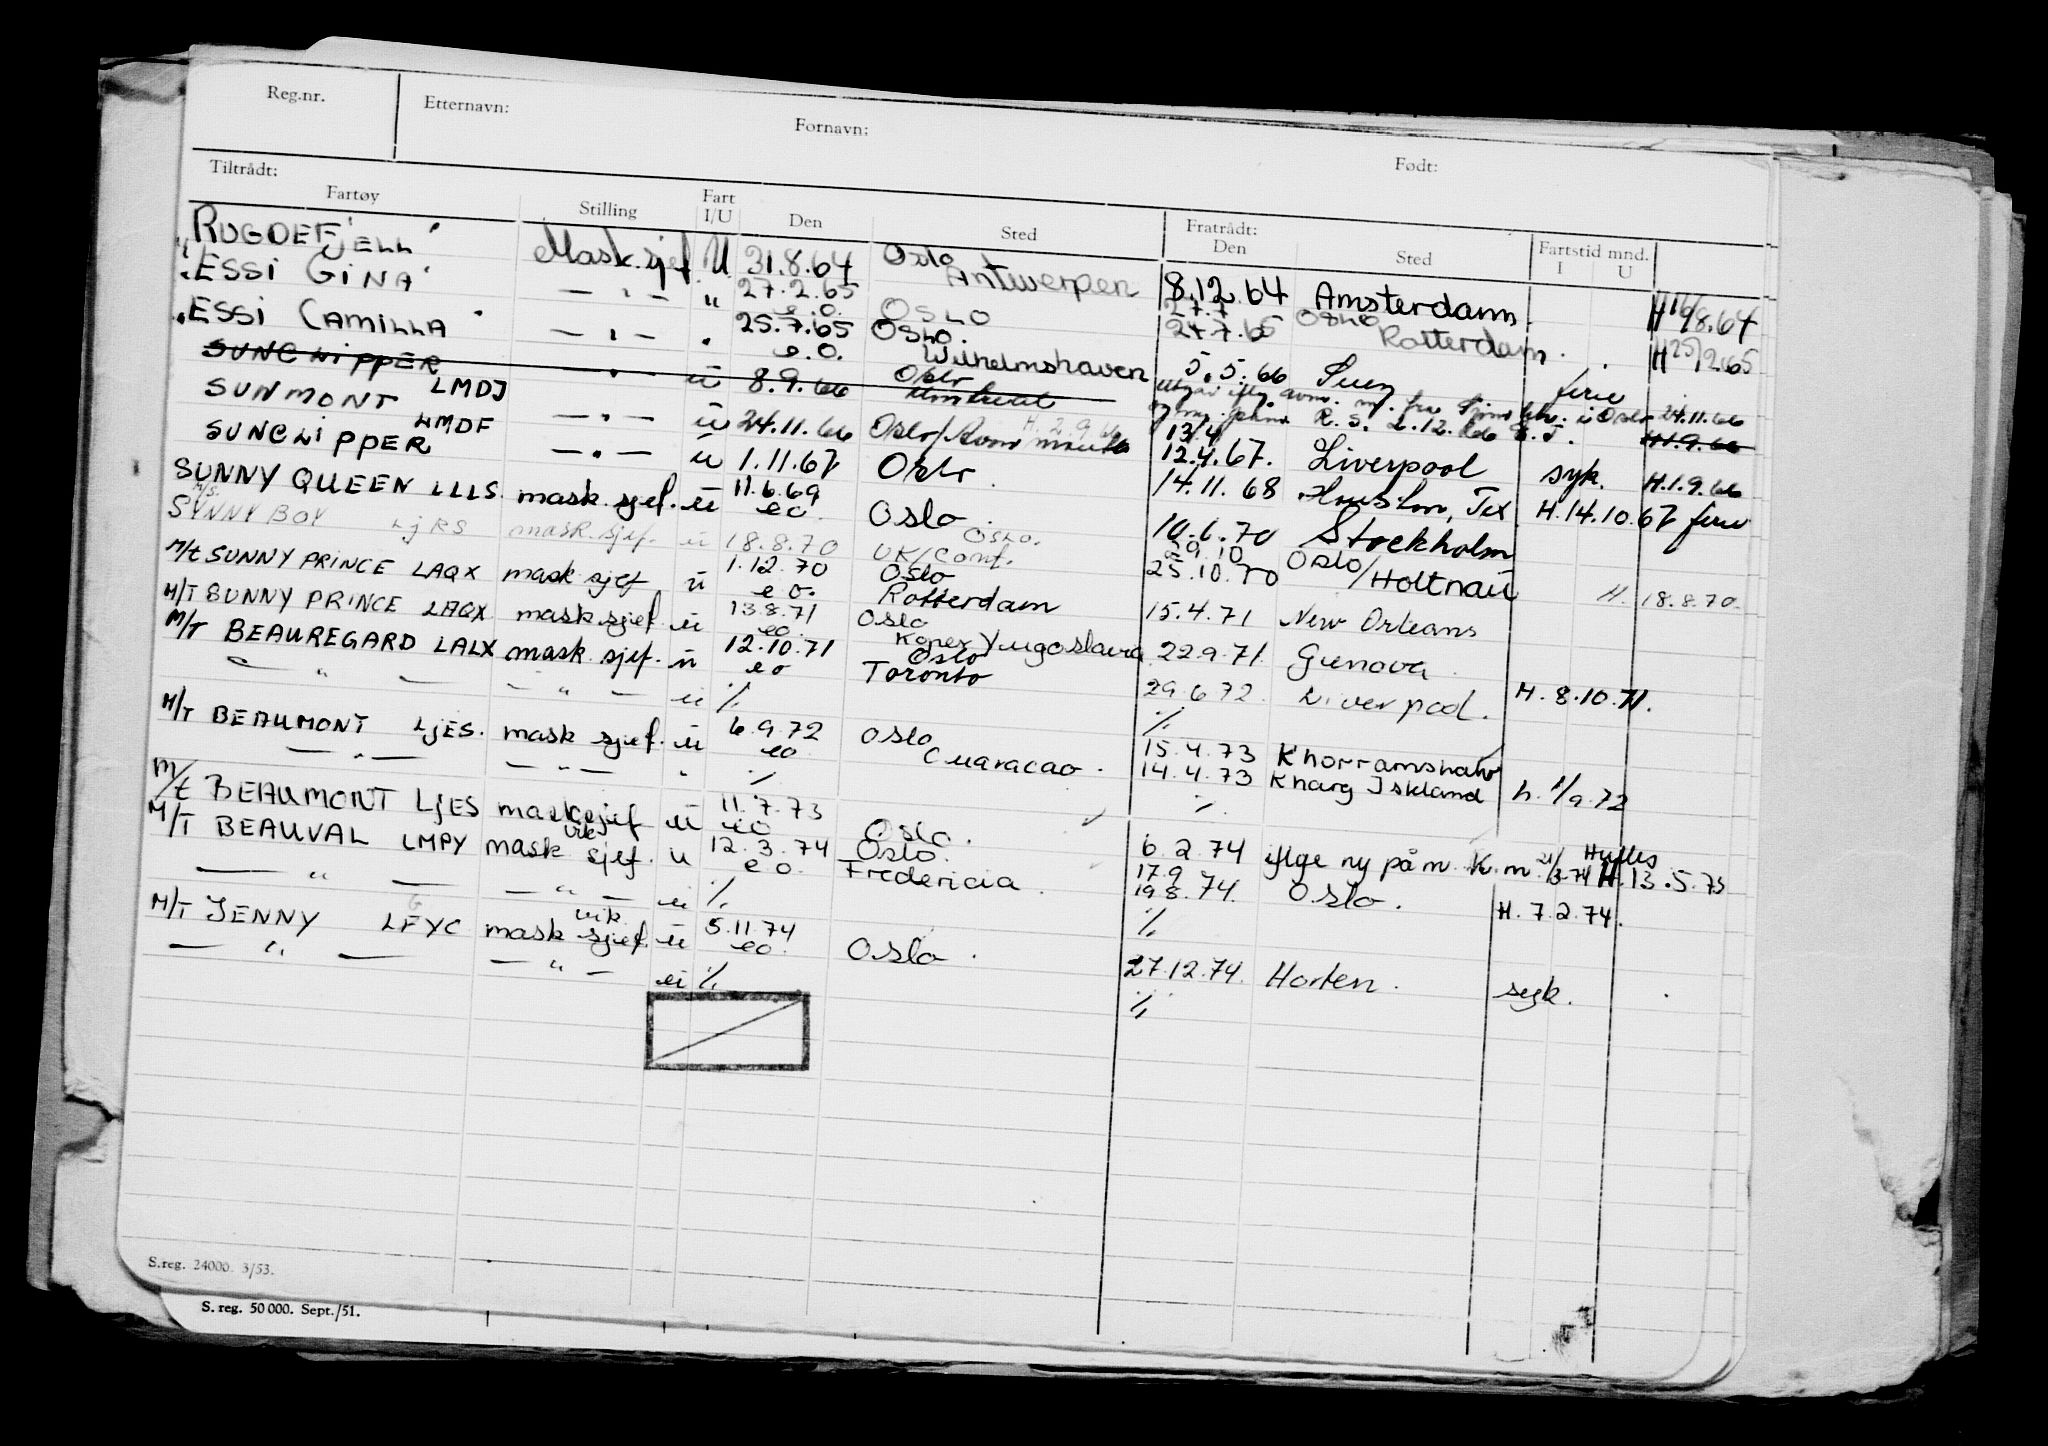 Reg.nr. Etternavn: Fornavn: Født:
Tiltrådt: Fratrådt:
Fartøy Stilling Fart I/U Den Sted Den Sted Fartstid mnd. I U
"RUGDEFJELL" Mask.sjef U 31.8.64 Oslo Antwerpen 8.12.64 Amsterdam. H 16/8.64
"ESSI GINA" — " — " 27.2.65 e.o. OSLO 27.7 24.7.65 OSLO Rotterdam. H 25/2 65
"ESSI CAMILLA" — " — " 25.7.65 e.o. OSLO. Wilhelmshaven 5.5.66 Suez ferie
SUNCLIPPER — " — ü 8.9.66 Oslo
SUNMONT LMDJ — " — ü 24.11.66 Oslo/ H. 2.9.66 13/4 12.4.67. Liverpool syk. H.1.9.66
SUNCLIPPER LMDF — " — ü 1.11.67 Oslo 14.11.68 Houston, Tex H.14.10.67 ferie
SUNNY QUEEN LLLS. mask.sjef. ü 11.6.69 eo Oslo. 10.6.70 Stockholm
M/S. SYNNY BOY LjRS mask.sjef. ü 18.8.70 OSLO. UK/Cont. 29.10 25.10.70 Oslo/Holtnau H. 18.8.70.
M/t SUNNY PRINCE LAQX mask sjef ü 1.12.70 e o. Oslo Rotterdam 15.4.71 New Orleans
M/T SUNNY PRINCE LAQX mask sjef. ü 13.8.71 eo. Oslo Koper Yugoslavia 22.9.71. Genova.
M/T BEAUREGARD LALX mask sjef. ü 12.10.71 eo Oslo Toronto 29.6.72. Liverpool. H. 8.10.71.
— " — — " — ü % %
M/T BEAUMONT LjES. mask sjef. ü 6.9.72 eo Oslo Cuaracao. 15.4.73 Khorramshahr
— " — — " — " % 14.4.73 Kharg Iskland h. 1/9.72
M/t BEAUMONT LjES mask sjef ü 11.7.73 eo Oslo. % 6.2.74 iflge ny påm. K.m. 21/3.74 H.13.5.73
M/T BEAUVAL LMPY mask vik sjef. ü 12.3.74 e o. Oslo. Fredericia. 17.9 19.8.74. Oslo. H. 7.2.74.
— " — — " — ü % %
M/T JENNY LFYC mask vik. sjef. ü 5.11.74 eo. Oslo. 27.12.74. Horten. syk.
— " — — " — ü % %
S.reg. 24000. 3/53.
S. reg. 50 000. Sept./51.